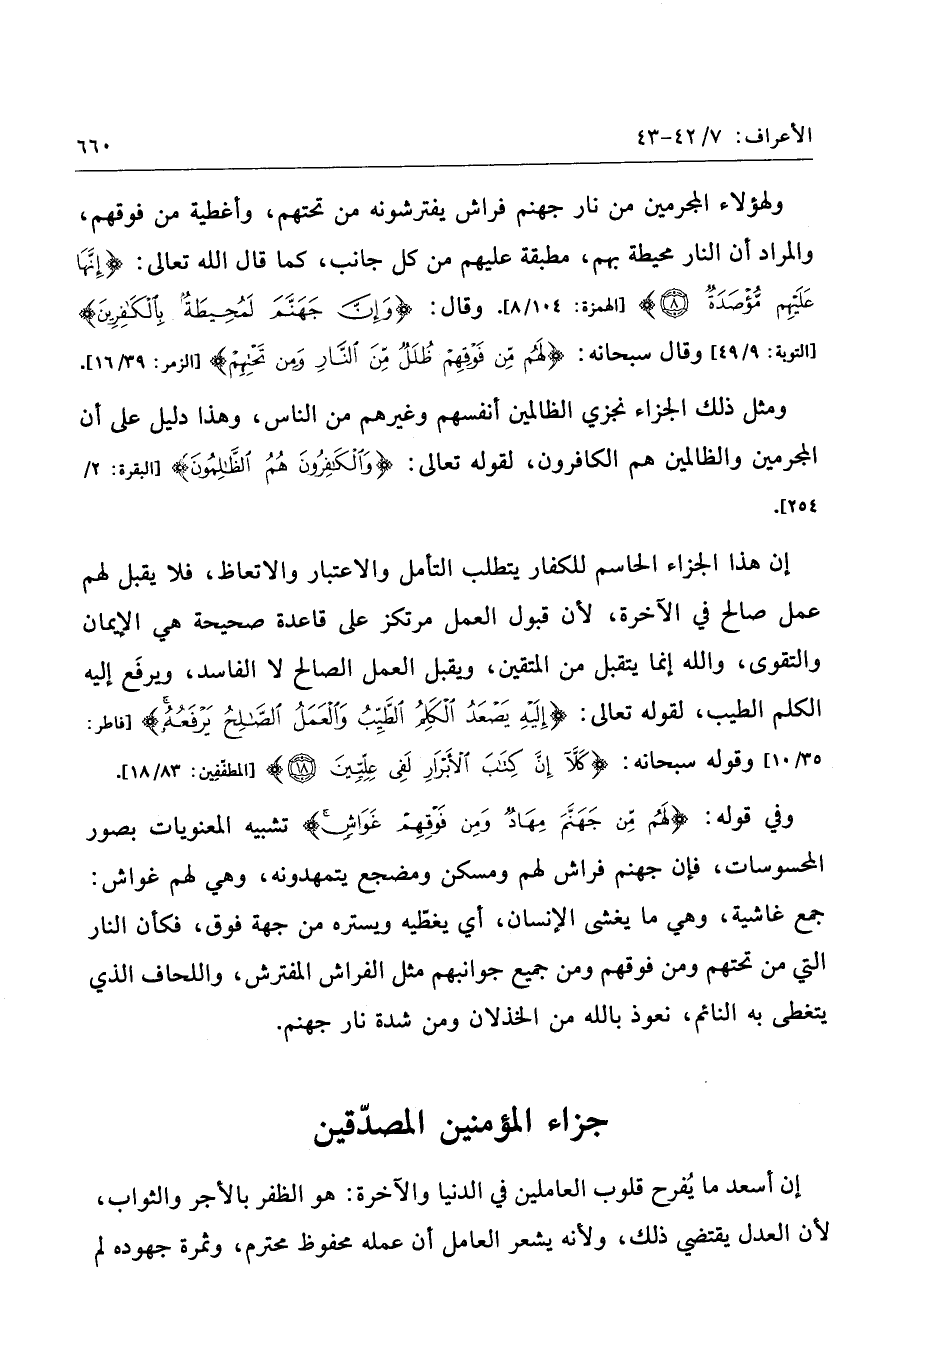 الأعراف: ٧/ ٤٢-٤٣
٦٦٠
ولهؤلاء المجرمين من نار جهنم فراش يفترشونه من تحتهم، وأغطية من فوقهم،
والمراد أن النار محيطة بهم، مطبقة عليهم من كل جانب، كما قال الله تعالى: ﴿إِنَّهَا
عَلَيْهِم مُّؤْصَدَةٌ ٨﴾ [الهمزة: ٨/١٠٤]. وقال: ﴿وَإِنَّ جَهَنَّمَ لَمُحِيطَةٌ بِٱلْكَافِرِينَ﴾
[التوبة: ٤٩/٩] وقال سبحانه: ﴿لَهُم مِّن فَوْقِهِمْ ظُلَلٌ مِّنَ ٱلنَّارِ وَمِن تَحْتِهِمْ﴾ [الزمر: ١٦/٣٩].
ومثل ذلك الجزاء نجزي الظالمين أنفسهم وغيرهم من الناس، وهذا دليل على أن
المجرمين والظالمين هم الكافرون، لقوله تعالى: ﴿وَٱلْكَٰفِرُونَ هُمُ ٱلظَّٰلِمُونَ﴾ [البقرة: ٢/
٢٥٤].
إن هذا الجزاء الحاسم للكفار يتطلب التأمل والاعتبار والاتعاظ، فلا يقبل لهم
عمل صالح في الآخرة، لأن قبول العمل مرتكز على قاعدة صحيحة هي الإيمان
والتقوى، والله إنما يتقبل من المتقين، ويقبل العمل الصالح لا الفاسد، ويرفَع إليه
الكلم الطيب، لقوله تعالى: ﴿إِلَيْهِ يَصْعَدُ ٱلْكَلِمُ ٱلطَّيِّبُ وَٱلْعَمَلُ ٱلصَّٰلِحُ يَرْفَعُهُۥۚ﴾ [فاطر:
١٠/٣٥] وقوله سبحانه: ﴿كَلَّآ إِنَّ كِتَٰبَ ٱلْأَبْرَارِ لَفِى عِلِّيِّينَ ١٨﴾ [المطفّفين: ١٨/٨٣].
وفي قوله: ﴿لَهُم مِّن جَهَنَّمَ مِهَادٌ وَمِن فَوْقِهِمْ غَوَاشٍۚ﴾ تشبيه المعنويات بصور
المحسوسات، فإن جهنم فراش لهم ومسكن ومضجع يتمهدونه، وهي لهم غواش:
جمع غاشية، وهي ما يغشى الإنسان، أي يغطّيه ويستره من جهة فوق، فكأن النار
التي من تحتهم ومن فوقهم ومن جميع جوانبهم مثل الفراش المفترش، واللحاف الذي
يتغطى به النائم، نعوذ بالله من الخذلان ومن شدة نار جهنم.
جزاء المؤمنين المصدّقين
إن أسعد ما يُفرح قلوب العاملين في الدنيا والآخرة: هو الظفر بالأجر والثواب،
لأن العدل يقتضي ذلك، ولأنه يشعر العامل أن عمله محفوظ محترم، وثمرة جهوده لم